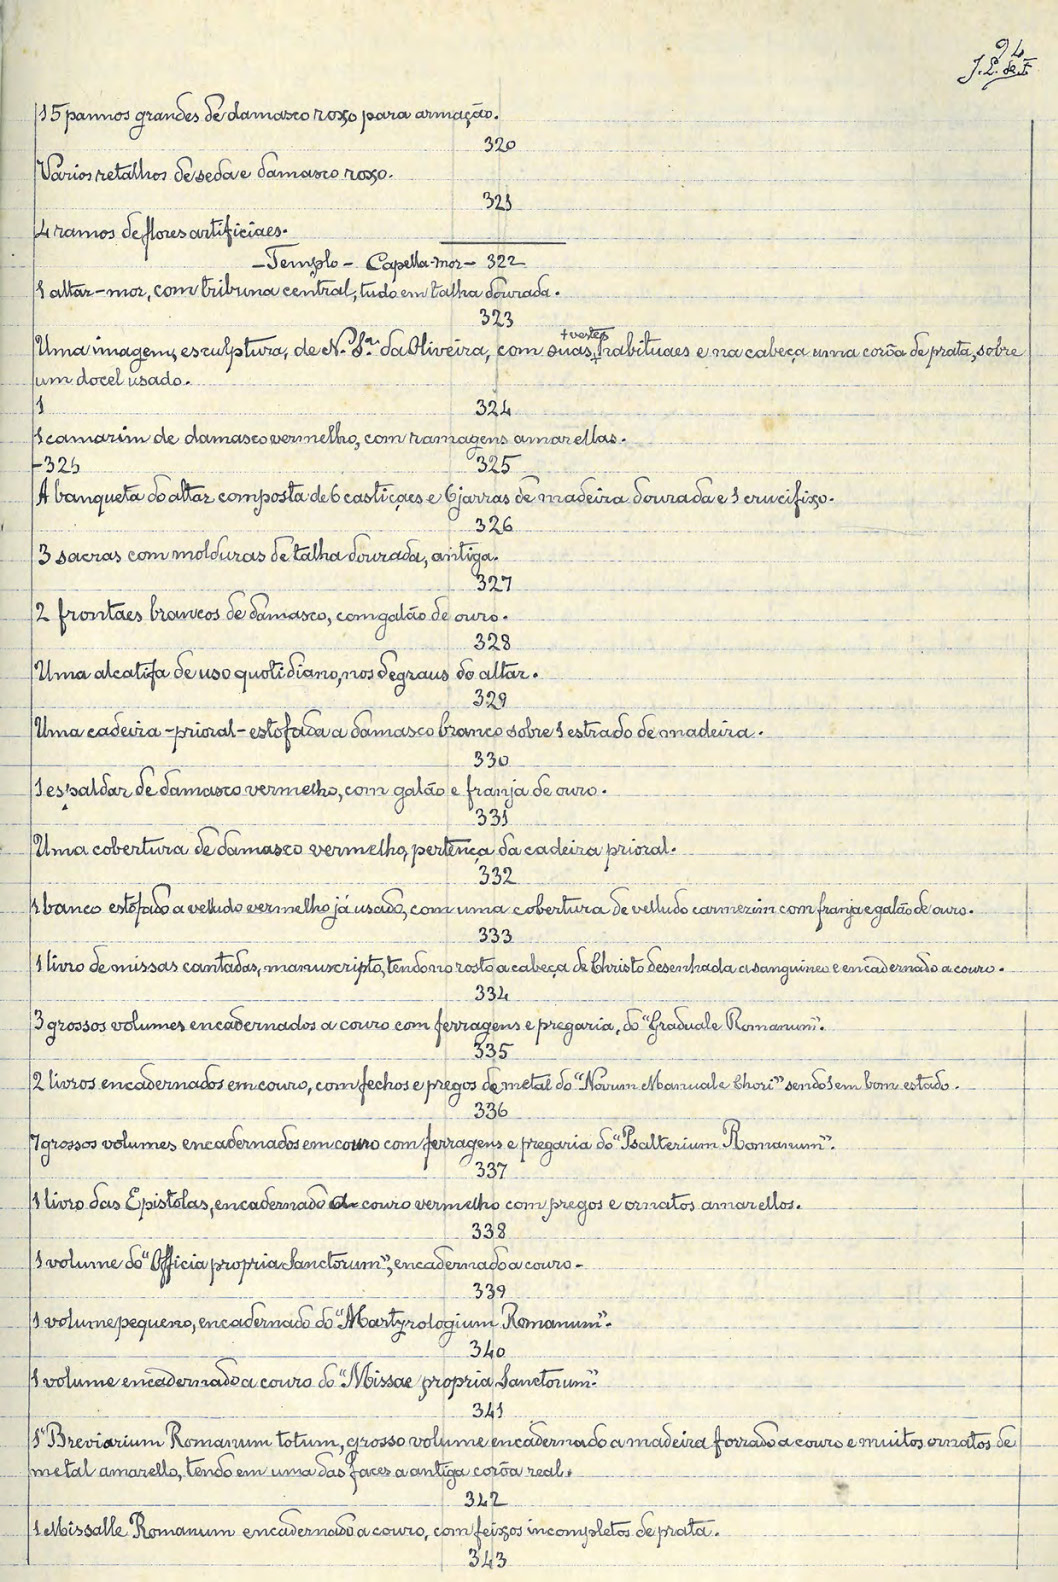 94
15 pannos grandes de damasco roxo para armação.
320
Varios retalhos de seda e damasco roxo.
321
4 ramos de flores artificiaes.
-Templo- Capella-mor- 322
1 altar-mor, com tribuna central, tudo em talha dourada.
323
+ vestes
Uma imagem, esculptura, de N. Sr.ª da Oliveira, com suas, habituaes e na cabeça uma corôa de prata, sobre
um docel usado.
1 324
1 camarim de damasco vermelho, com ramagens amarellas.
-325 325
A banqueta do altar composta de 6 castiçaes e 6 jarras de madeira dourada e 1 crucifixo.
326
3 sacras com molduras de talha dourada, antiga.
327
2 frontaes brancos de damasco, com galão de ouro.
328
Uma alcatifa de uso quotidiano, nos degraus do altar.
329
Uma cadeira -prioral- estofada a damasco branco sobre 1 estrado de madeira.
330
1 espaldar de damasco vermelho, com galão e franja de ouro.
331
Uma cobertura de damasco vermelho, pertença da cadeira prioral.
332
1 banco estofado a velludo vermelho já usado, com uma cobertura de velludo carmezim com franja e galão de ouro.
333
1 livro de missas cantadas, manuscripto, tendo no rosto a cabeça de Christo desenhada a sanguineo e encadernado a couro.
334
3 grossos volumes encadernados a couro com ferragens e pregaria, do "Graduale Romanum".
335
2 livros encadernados em couro, com fechos e pregos de metal do "Novum Manuale Chori" sendo 1 em bom estado.
336
7 grossos volumes encadernados em couro com ferragens e pregaria do "Psalterium Romanum".
337
1 livro das Epistolas, encadernado a couro vermelho com pregos e ornatos amarellos.
338
1 volume do "Officia propria Sanctorum", encadernado a couro-
339
1 volume pequeno, encadernado do "Martyrologium Romanum".
340
1 volume encadernado a couro do "Missae propria Sanctorum".
341
1 "Breviarium Romanum totum, grosso volume encadernado a madeira forrado a couro e muitos ornatos de
metal amarello, tendo em uma das faces a antiga corôa real.
342
1 Missalle Romanum encadernado a couro, com feixos incompletos de prata.
343